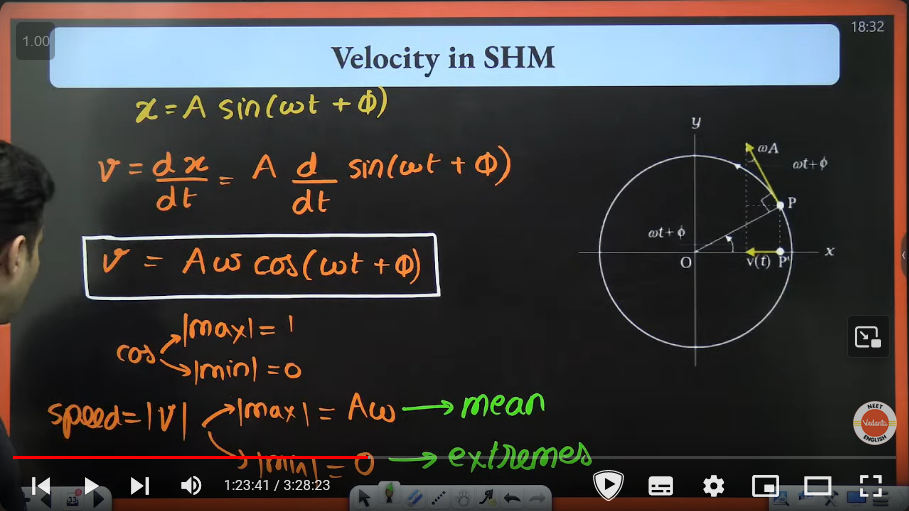 1.00
18:32
Velocity in SHM
x = A sin(ωt + ϕ)
v = dx/dt = A d/dt sin(ωt + ϕ)
v = Aω cos(ωt + ϕ)
cos
|max| = 1
|min| = 0
speed = |v|
|max| = Aω → mean
|min| = 0 → extremes
y
ωA
ωt + ϕ
P
ωt + ϕ
O
v(t)
P'
x
NEET
Vedantu
ENGLISH
1:23:41 / 3:28:23
33